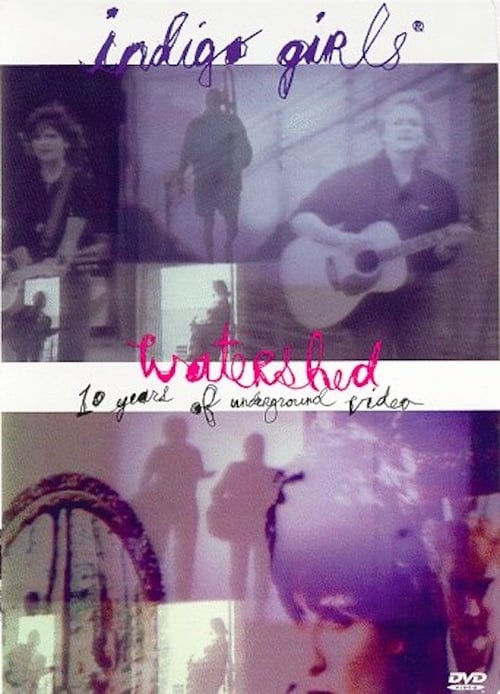 indigo girls®
watershed
10 years of underground video
DVD
VIDEO